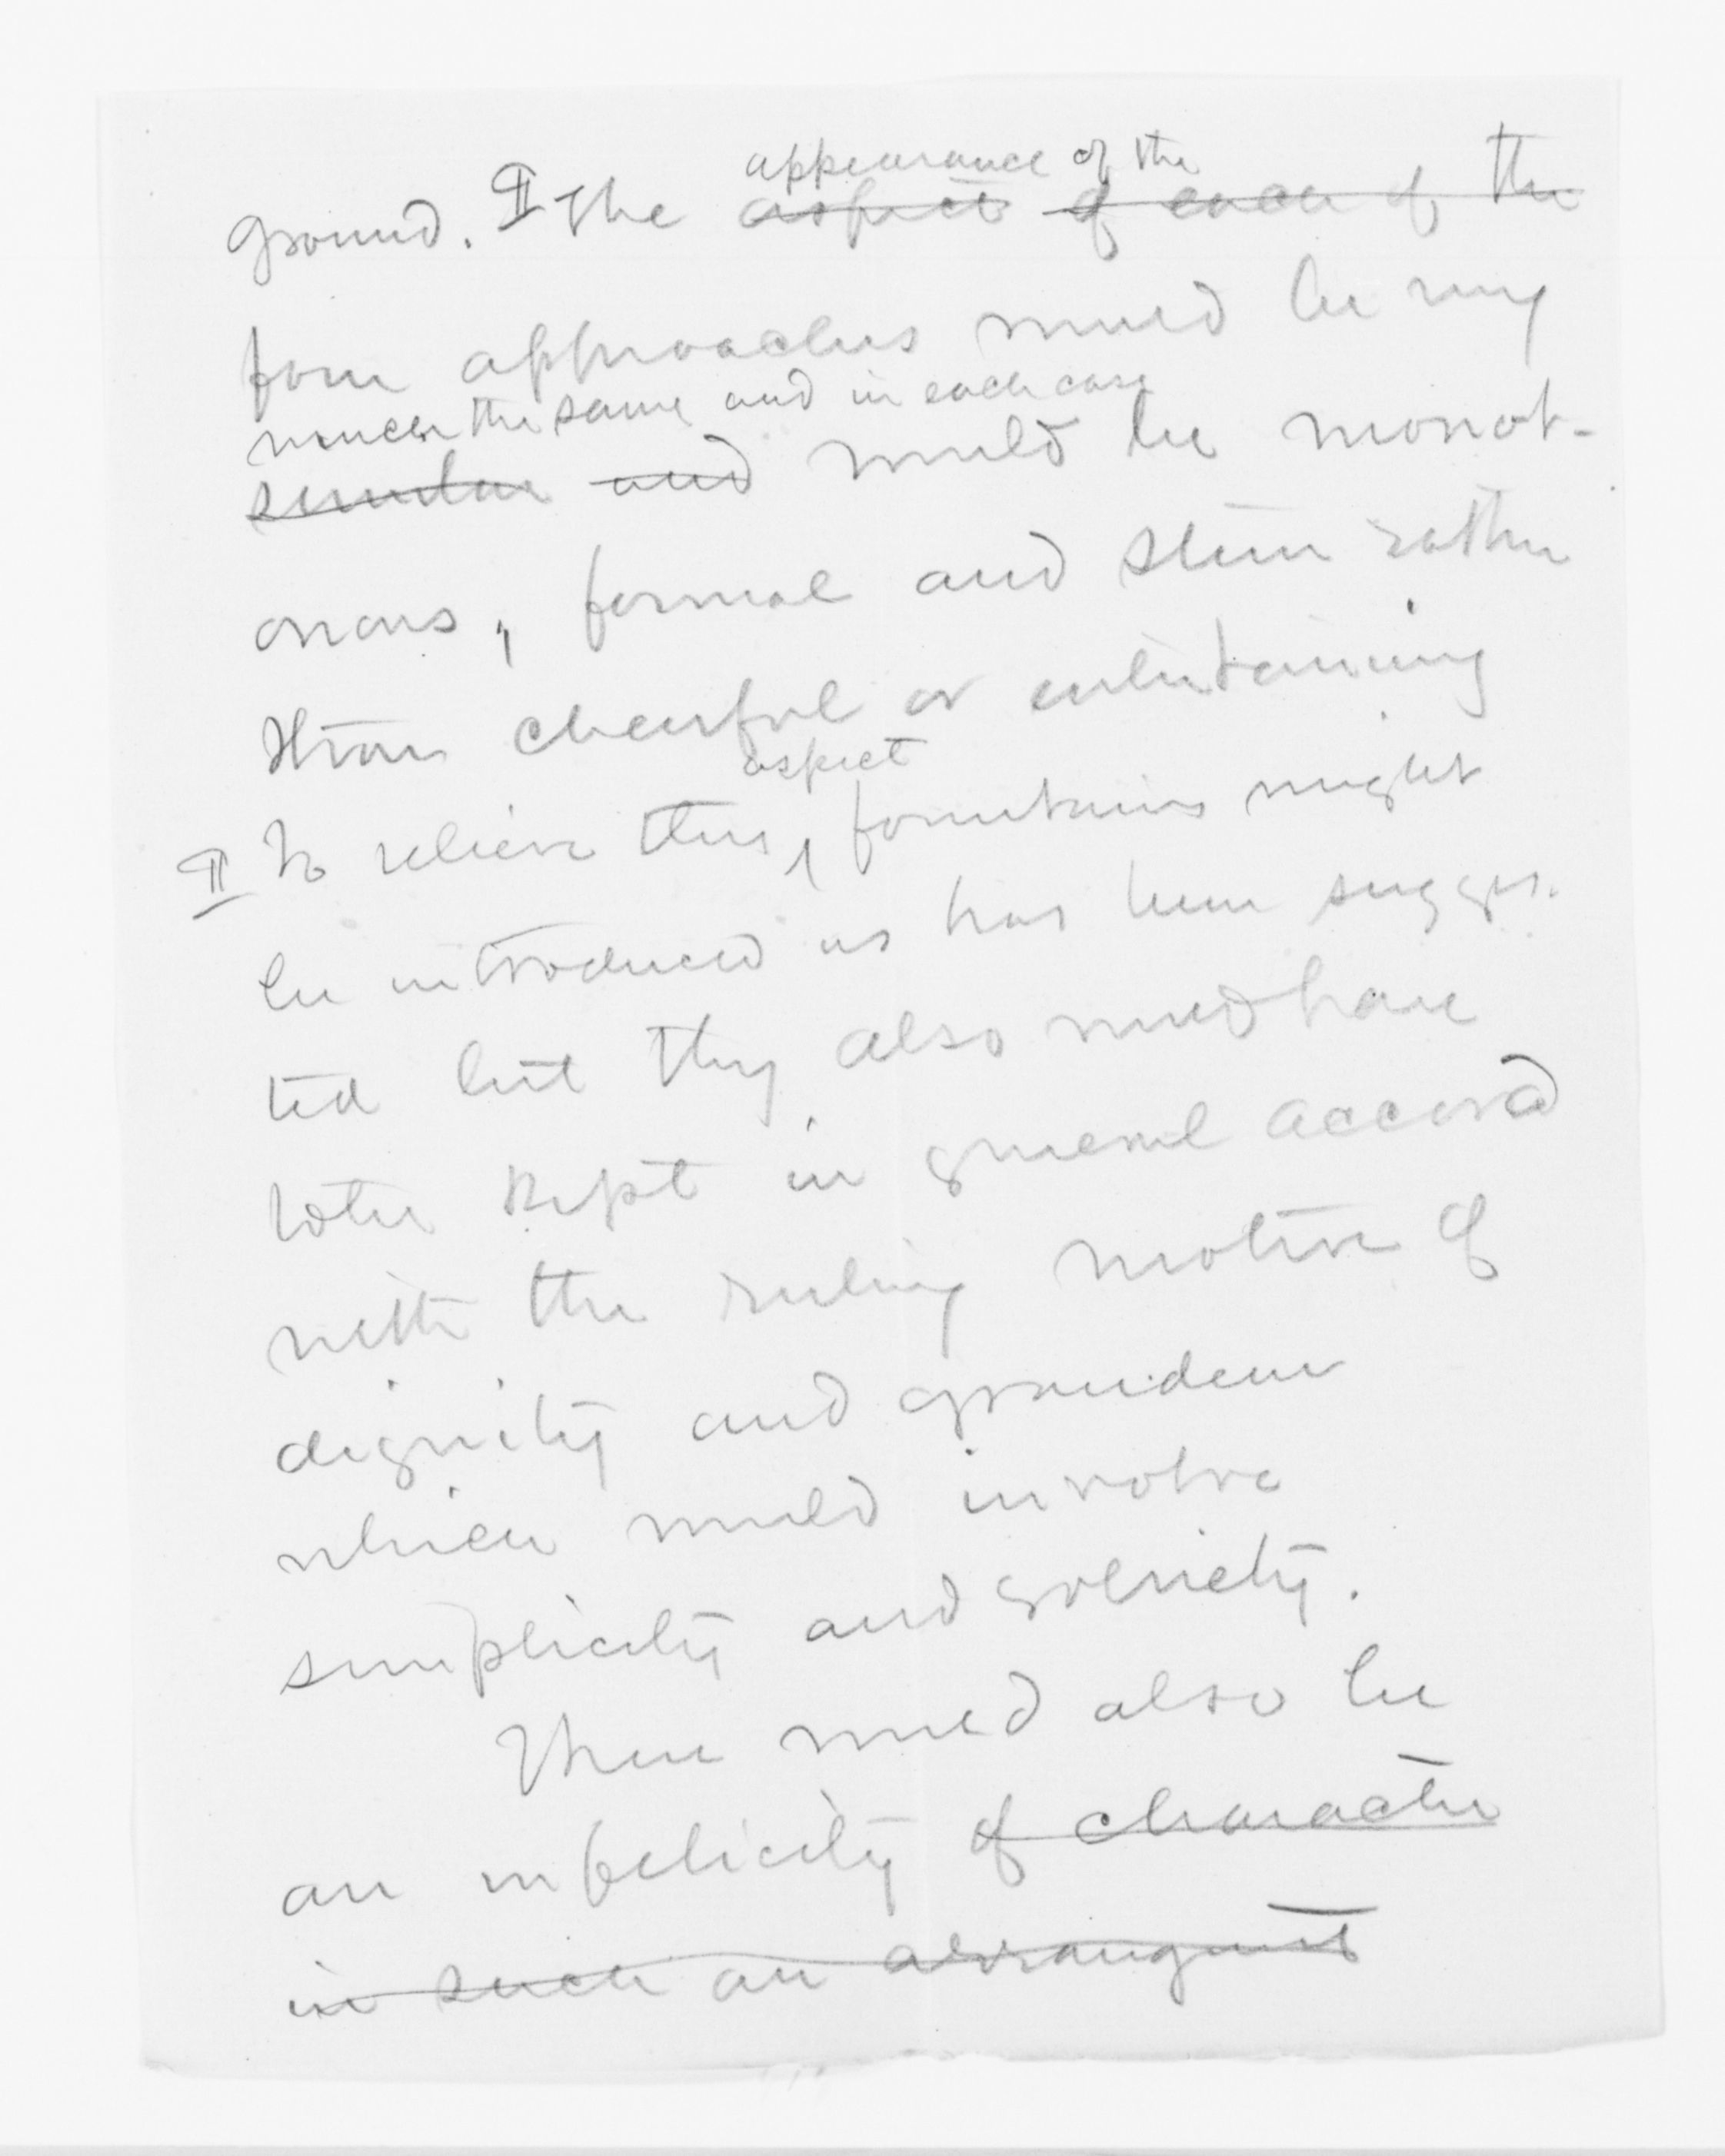 ground. ¶ The appearance of the
aspect of each of the
four approaches would be very
much the same and in each case
similar and would be monot-
onous, formal and stern rather
than cheerful or entertaining
aspect
¶ To relieve this, fountains might
be introduced as has been sugges-
ted but they also would have
to be kept in general accord
with the ruling motive of
dignity and grandeur
which would involve
simplicity and sobriety.
There would also be
an infelicity of character
in such an arrangement